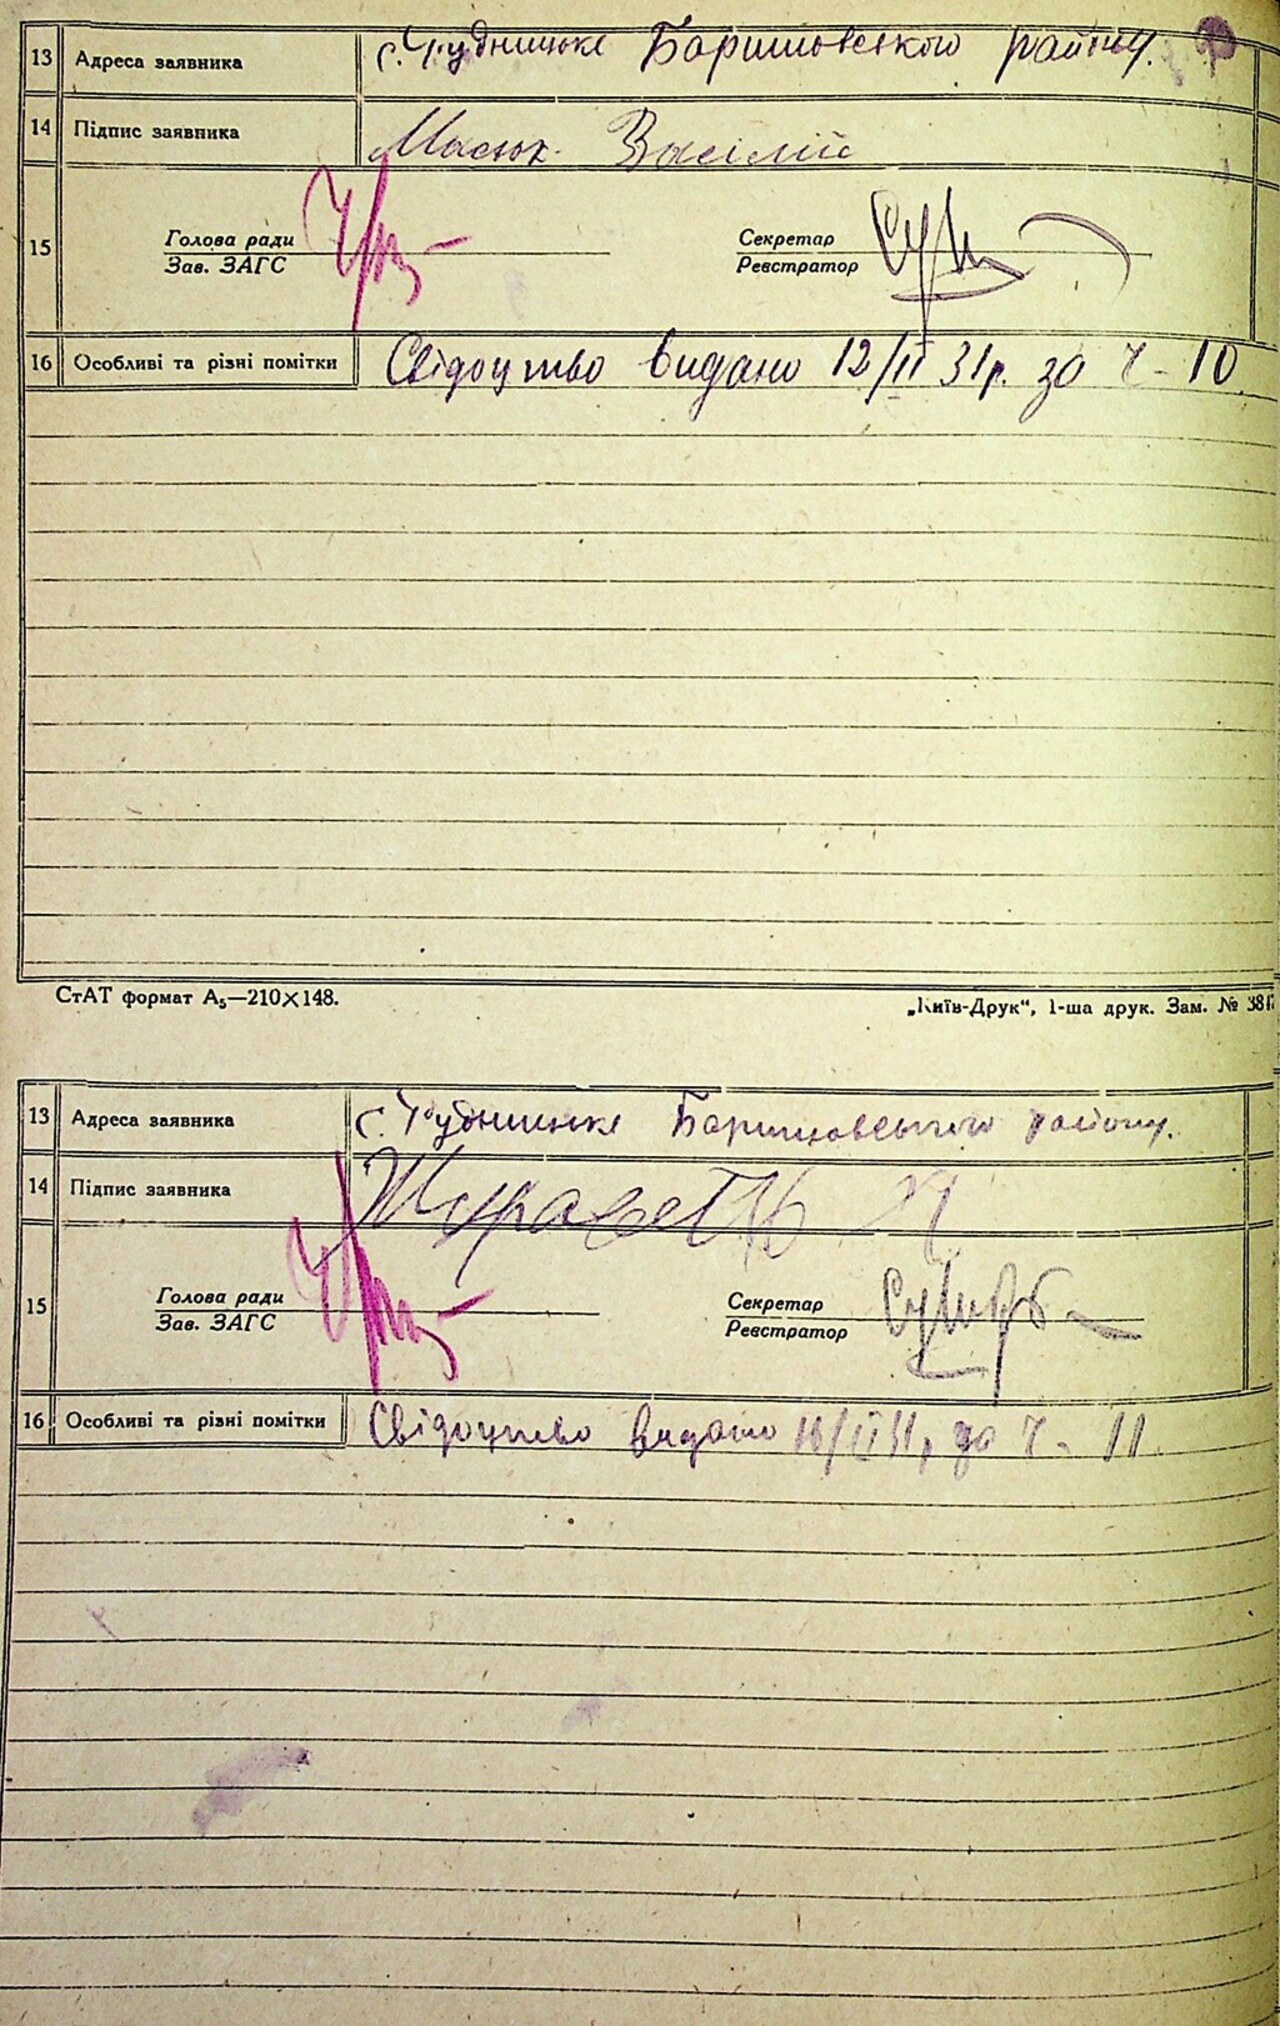 13 Адреса заявника с. Рудницьке Баришовського району.
14 Підпис заявника Масюк Васілій
15 Голова ради
Зав. ЗАГС
Секретар
Реєстратор
16 Особливі та різні помітки Свідоцтво видано 12/II 31р. за Ч- 10
СтАТ формат А₅—210×148.
„Київ-Друк“, 1-ша друк. Зам. № 381
13 Адреса заявника с. Рудницьке Баришовського району.
14 Підпис заявника
15 Голова ради
Зав. ЗАГС
Секретар
Реєстратор
16 Особливі та різні помітки Свідоцтво видано 16/II 31р за Ч- 11.